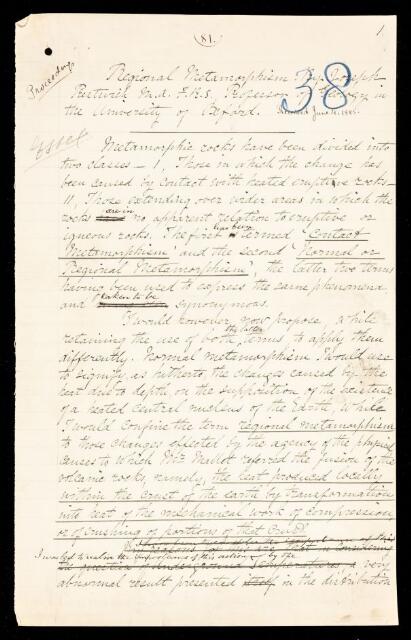 1
(81.
Proceedings
Regional Metamorphism. By Joseph
38
Prestwich M.A. F.R.S., Professor of Geology in
the University of Oxford. Received June 10. 1885.
Metamorphic rocks have been divided into
two classes – 1, Those in which the change has
been caused by contact with heated eruptive rocks –
11, Those extending over wider areas in which the
rocks are in no apparent relation to eruptive or
igneous rocks. The first has been termed Contact
Metamorphism and the second Normal or
Regional Metamorphism, the latter two terms
having been used to express the same phenomena
and taken to be synonymous.
I would however now propose, while
retaining the use of both the latter terms to apply them
differently. Normal metamorphism I would use
to signify, as hitherto, the changes caused by the
heat due to depth, on the supposition of the existence
of a heated central nucleus of the Earth, while
I would confine the term regional metamorphism
to those changes effected by the agency of the physical
causes to which Mr Mallet referred the fusion of the
volcanic rocks, namely, the heat produced locally
within the crust of the earth by transformation
into heat of the mechanical work of compression
or of crushing of portions of that crust.
I was led to realise the importance of this action by the
very
abnormal result presented in the distribution